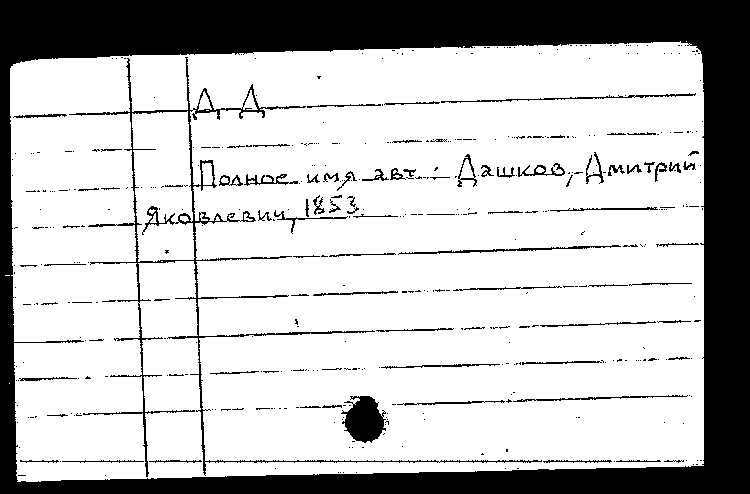 Д Д
Полное имя авт. : Дашков, Дмитрий
Яковлевич, 1853